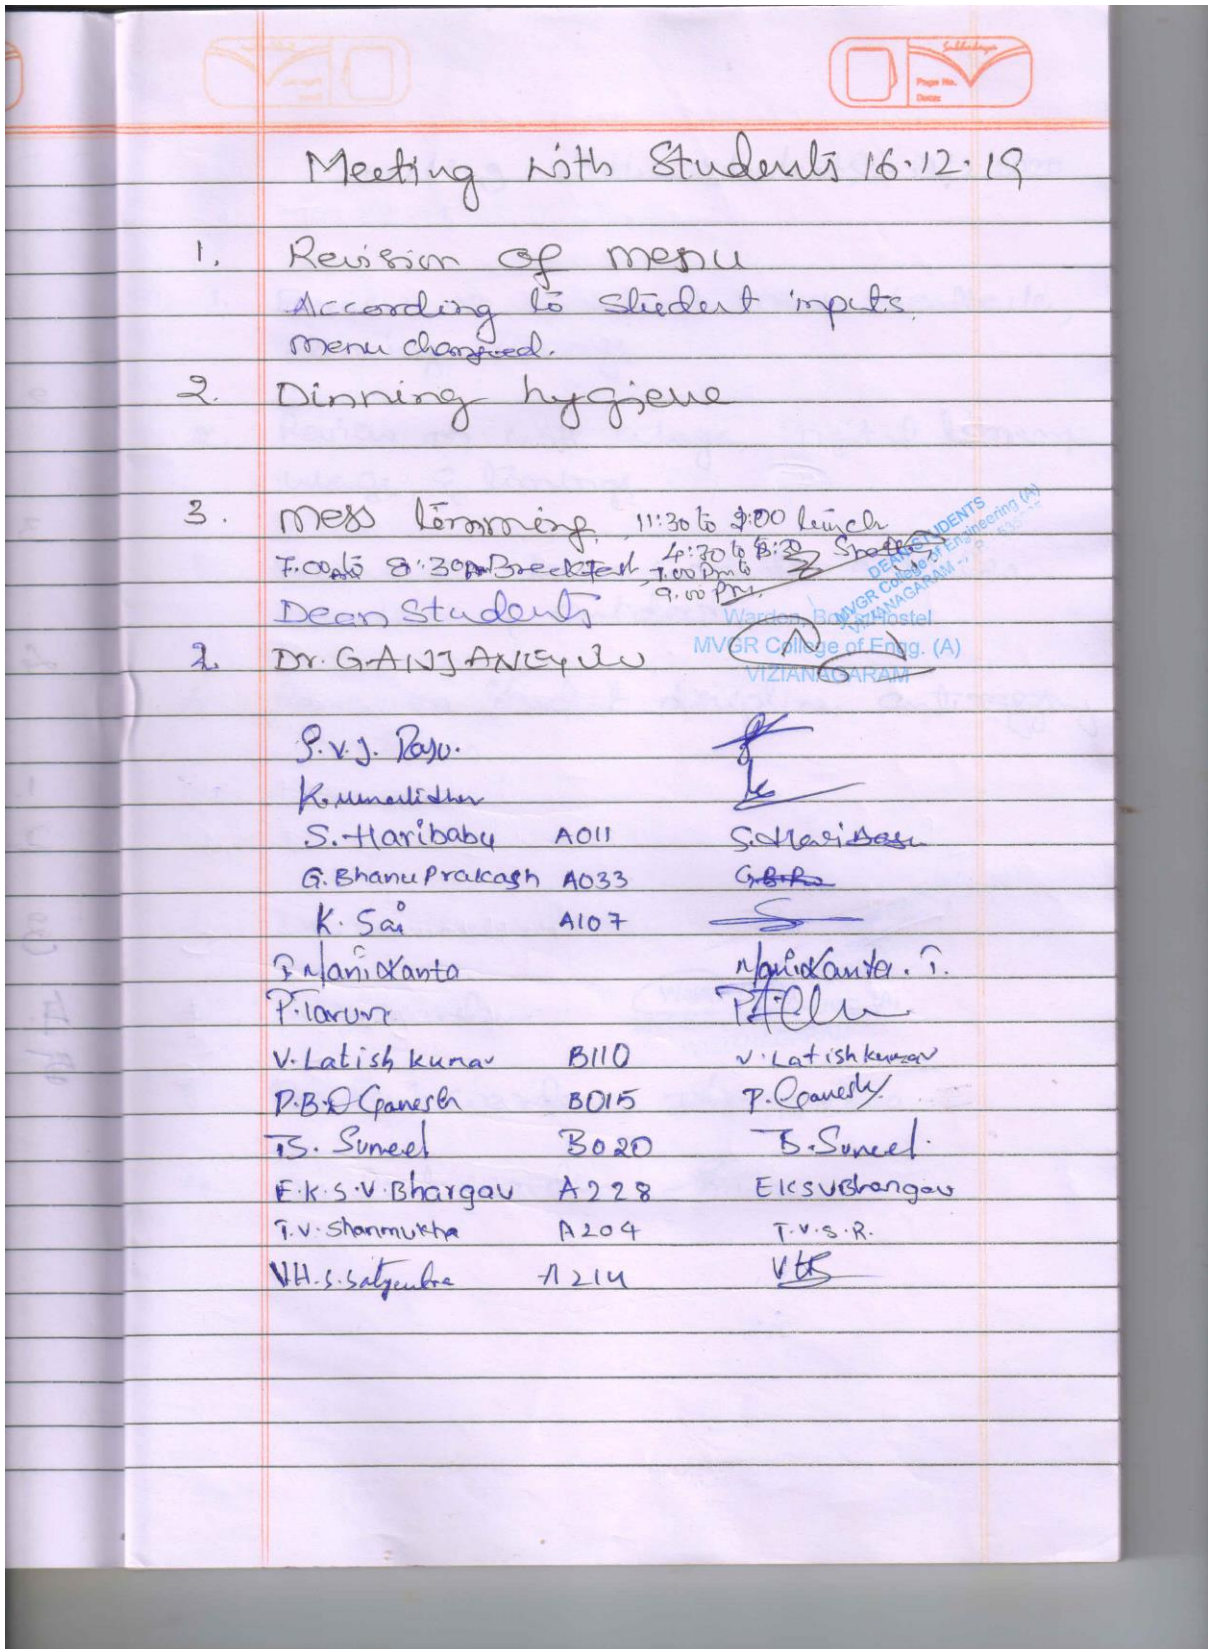 Page No.
Date:
Meeting with Students 16.12.19
1. Revision of menu
According to Student inputs.
menu changed.
2. Dinning hygiene
3. Mess timming. 11:30 to 2:00 lunch
7.00 to 8:30 Breckfast 4:30 to
7.00 Pm to
9.00 Pm.
DEAN STUDENTS
MVGR College of Engineering (A)
VIZIANAGARAM
Dean Students
Warden, Boys Hostel
2. Dr. GANJANEYULU
MVGR College of Engg. (A)
VIZIANAGARAM
S.V.J. Raju.
K. Muralidhar
S. Haribabu A011 S. Haribabu
G. Bhanu Prakash A033
K. Sai A107
T Manikanta Manikanta. T.
P. Tarun
V. Latish kumar B110 V. Latish kumar
P.B.D Ganesh B015 P. Ganesh
B. Suneel B020 B. Suneel.
E.K.S.V. Bhargav A228 EKSVBhargav
T.V. Shanmukha A204 T.V.S.R.
V.H.S. Satyendra A214